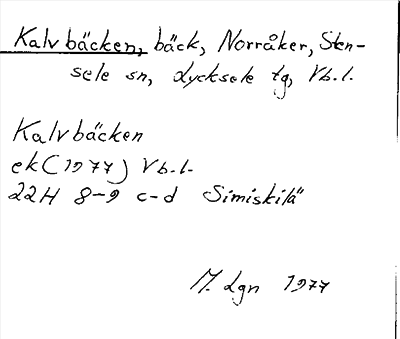 Kalvbäcken, bäck, Norråker, Sten-
sele sn, Lycksele tg, Vb.l.
Kalvbäcken
ek (1977) Vb.l.
22H 8-9 c-d Simiskilä
M. Lgn 1977